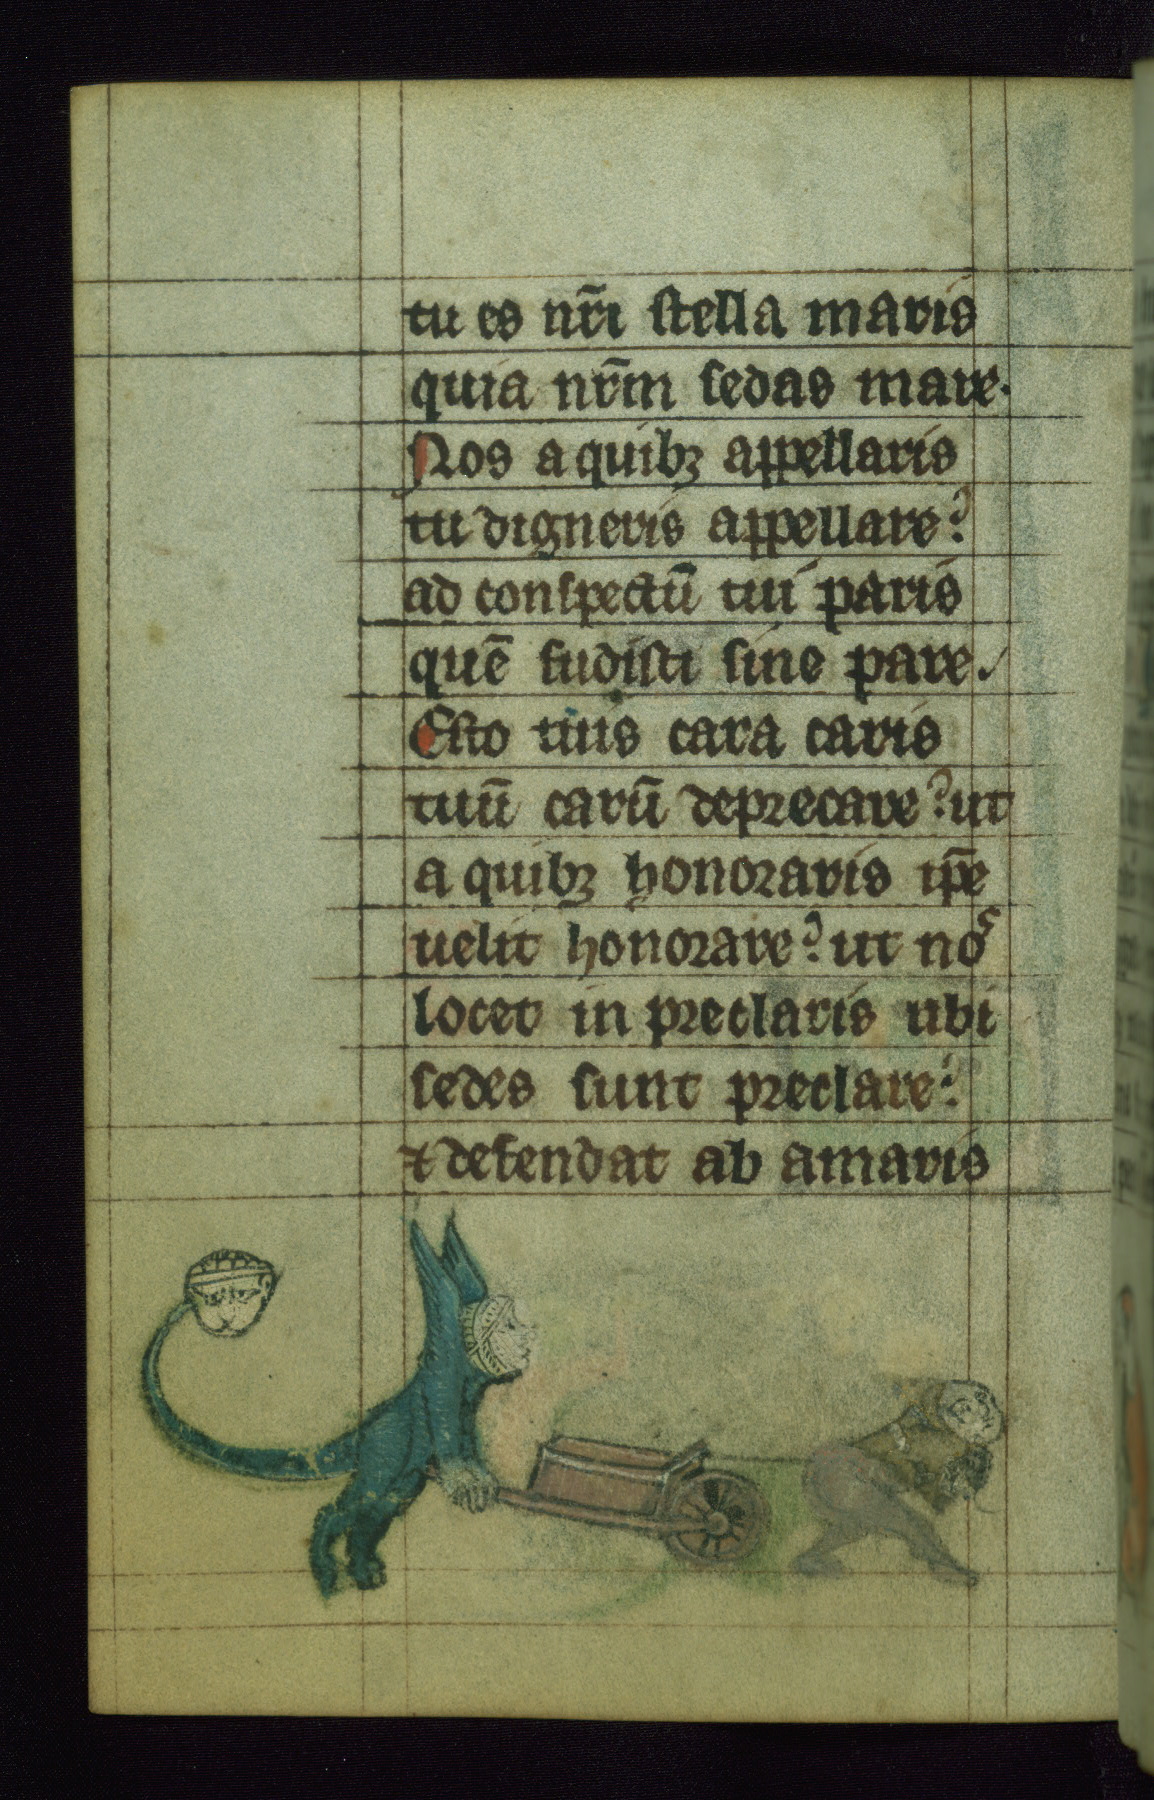 tu es nr̄i stella maris
quia nr̄m sedas mare.
Nos a quibꝫ appellaris
tu digneris appellare?
ad conspectū tui paris
quē fudisti sine pare.
Esto tuis cara caris
tuū carū deprecare? ut
a quibꝫ honoraris ip̄e
uelit honorare? ut nos
locet in preclaris ubi
sedes sunt preclare?
⁊ defendat ab amaris